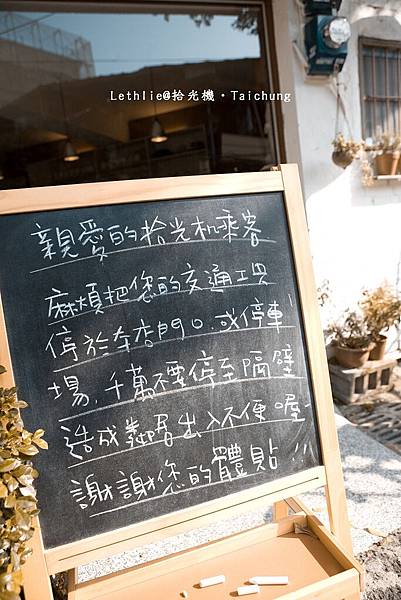 Lethlie@拾光機・Taichung
親愛的拾光机乘客
麻煩把您的交通工具
停於本店門口.或停車
場.千萬不要停至隔壁
造成鄰居出入不便喔~
謝謝您的體貼!!!